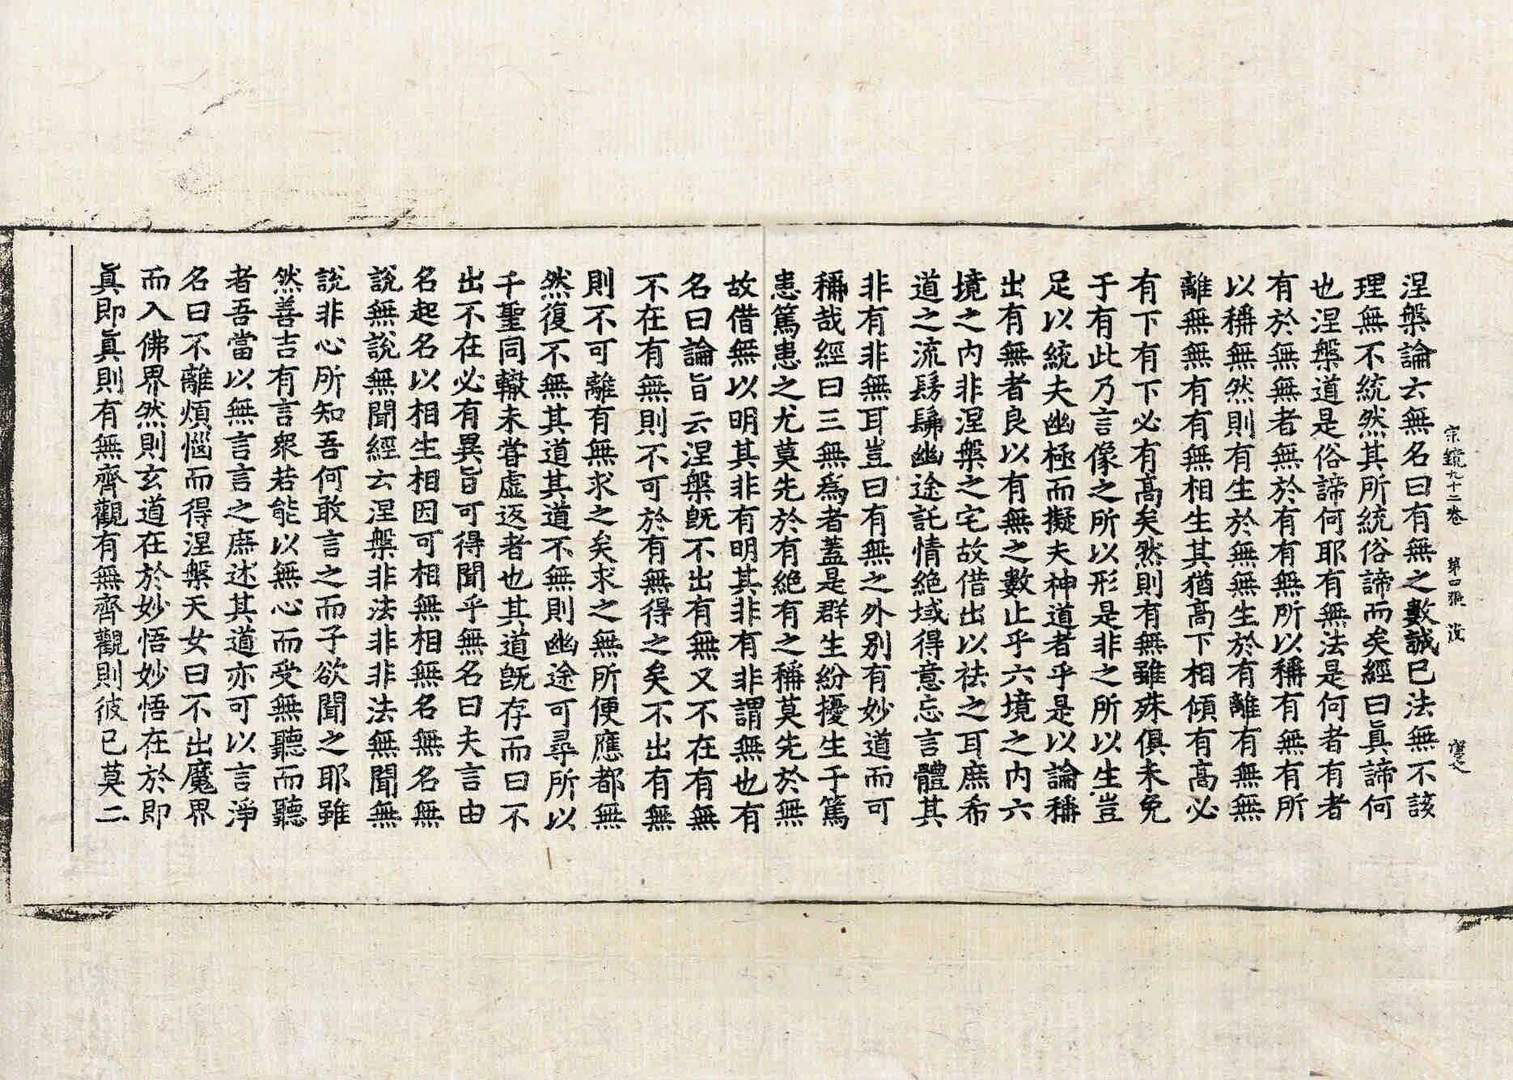 宗鏡九十二卷 第四張
涅槃論云無名曰有無之數誠已法無不該
理無不統然其所統俗諦而矣經曰眞諦何
也涅槃道是俗諦何耶有無法是何者有者
有於無無者無於有有無所以稱有無有所
以稱無然則有生於無無生於有離有無無
離無無有有無相生其猶高下相傾有高必
有下有下必有高矣然則有無雖殊俱未免
于有此乃言像之所以形是非之所以生豈
足以統夫幽極而擬夫神道者乎是以論稱
出有無者良以有無之數止乎六境之内六
境之内非涅槃之宅故借出以祛之耳庶希
道之流髣髴幽途託情絶域得意忘言體其
非有非無耳豈曰有無之外別有妙道而可
稱哉經曰三無爲者蓋是群生紛擾生于篤
患篤患之尤莫先於有絶有之稱莫先於無
故借無以明其非有明其非有非謂無也有
名曰論旨云涅槃既不出有無又不在有無
不在有無則不可於有無得之矣不出有無
則不可離有無求之矣求之無所便應都無
然復不無其道其道不無則幽途可尋所以
千聖同轍未嘗虛返者也其道既存而曰不
出不在必有異旨可得聞乎無名曰夫言由
名起名以相生相因可相無相無名無名無
說無說無聞經云涅槃非法非非法無聞無
說非心所知吾何敢言之而子欲聞之耶雖
然善吉有言衆若能以無心而受無聽而聽
者吾當以無言言之庶述其道亦可以言淨
名曰不離煩惱而得涅槃天女曰不出魔界
而入佛界然則玄道在於妙悟妙悟在於即
眞即眞則有無齊觀有無齊觀則彼已莫二